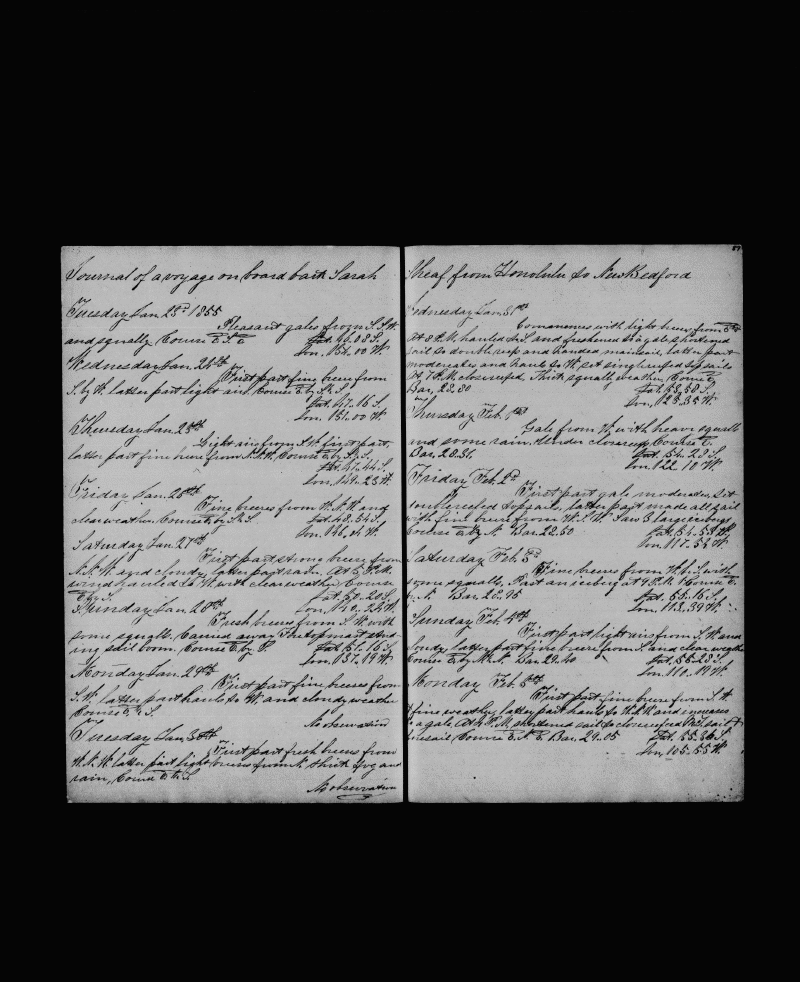 Journal of a voyage on board bark Sarah
Tuesday Jan. 23d 1855
Pleasant gales from S.S.W.
and squally. Course E.S.E
Lat. 46.08 S.
Lon. 154.00 W.
Wednesday Jan. 24th
First part fine breeze from
S. by W. latter part light airs. Course E. by S.
Lat. 47.16 S.
Lon. 151.00 W.
Thursday Jan. 25th
Light airs from S.W. first part,
latter part fine breeze from N.N.W. Course E. by S.
Lat. 47.44 S.
Lon. 149.23 W.
Friday Jan. 26th
Fine breezes from W.N.W. and
clear weather. Course E. by S.
Lat. 48.54 S.
Lon. 146.04 W.
Saturday Jan. 27th
First part strong breeze from
N.N.W. and cloudy, latter part rain. At 5 P.M.
wind hauled to W. with clear weather. Course
E. by S.
Lat. 50.20 S.
Lon. 140.25 W.
Sunday Jan. 28th
Fresh breezes from S.W. with
some squalls. Carried away the topmast stud-
ing sail boom. Course E. by S.
Lat. 51.16 S.
Lon. 137.19 W.
Monday Jan. 29th
First part fine breezes from
S.W. latter part hauls to W. and cloudy weather
Course E. S.
No observation
Tuesday Jan. 30th
First part fresh breezes from
W.N.W. latter part light breezes from N. thick fog and
rain, Course E. S.
No observation
Sheaf from Honolulu to New Bedford
87
Wednesday Jan. 31st
Commences with light breeze from
At 8 P.M. hauled to S. and freshened to a gale shortened
sail to double reefs and handed mainsail, latter part
moderates and hauls to W. set single reefed topsails
At 7 P.M. close reefed. Thick squally weather, Course E.
Bar. 28.80
Lat. 53.58 S.
Lon. 128.35 W.
Thursday Feb. 1st
Gale from W. with heavy squalls
and some rain. Under close reefs, Course E.
Bar. 28.81.
Lat. 54.23 S.
Lon. 122.10 W.
Friday Feb. 2d
First part gale moderates, set
double reefed topsails, latter part made all sail
with fine breeze from W.S.W. Saw 3 large icebergs
Course E. by N. Bar. 28.60
Lat. 54.58 S.
Lon. 117.53 W.
Saturday Feb. 3d
Fine breezes from W.S. with
some squalls. Past an iceberg at 4 P.M. Course E.
by N. Bar. 28.95
Lat. 55.16 S.
Lon. 113.39 W.
Sunday Feb. 4th
First part light airs from S.W. and
cloudy latter part fine breeze from S. and clear weather
Course E. by N. Bar. 29.40
Lat. 55.28 S.
Lon. 110.19 W.
Monday Feb. 5th
First part fine breeze from S.W.
& fine weather, latter part hauls to W.N.W. and increases
to a gale. At 4 P.M. shortened sail to close reefed M.T. sail &
foresail Course E. Bar. 29.05
Lat. 55.36 S.
Lon. 105.55 W.